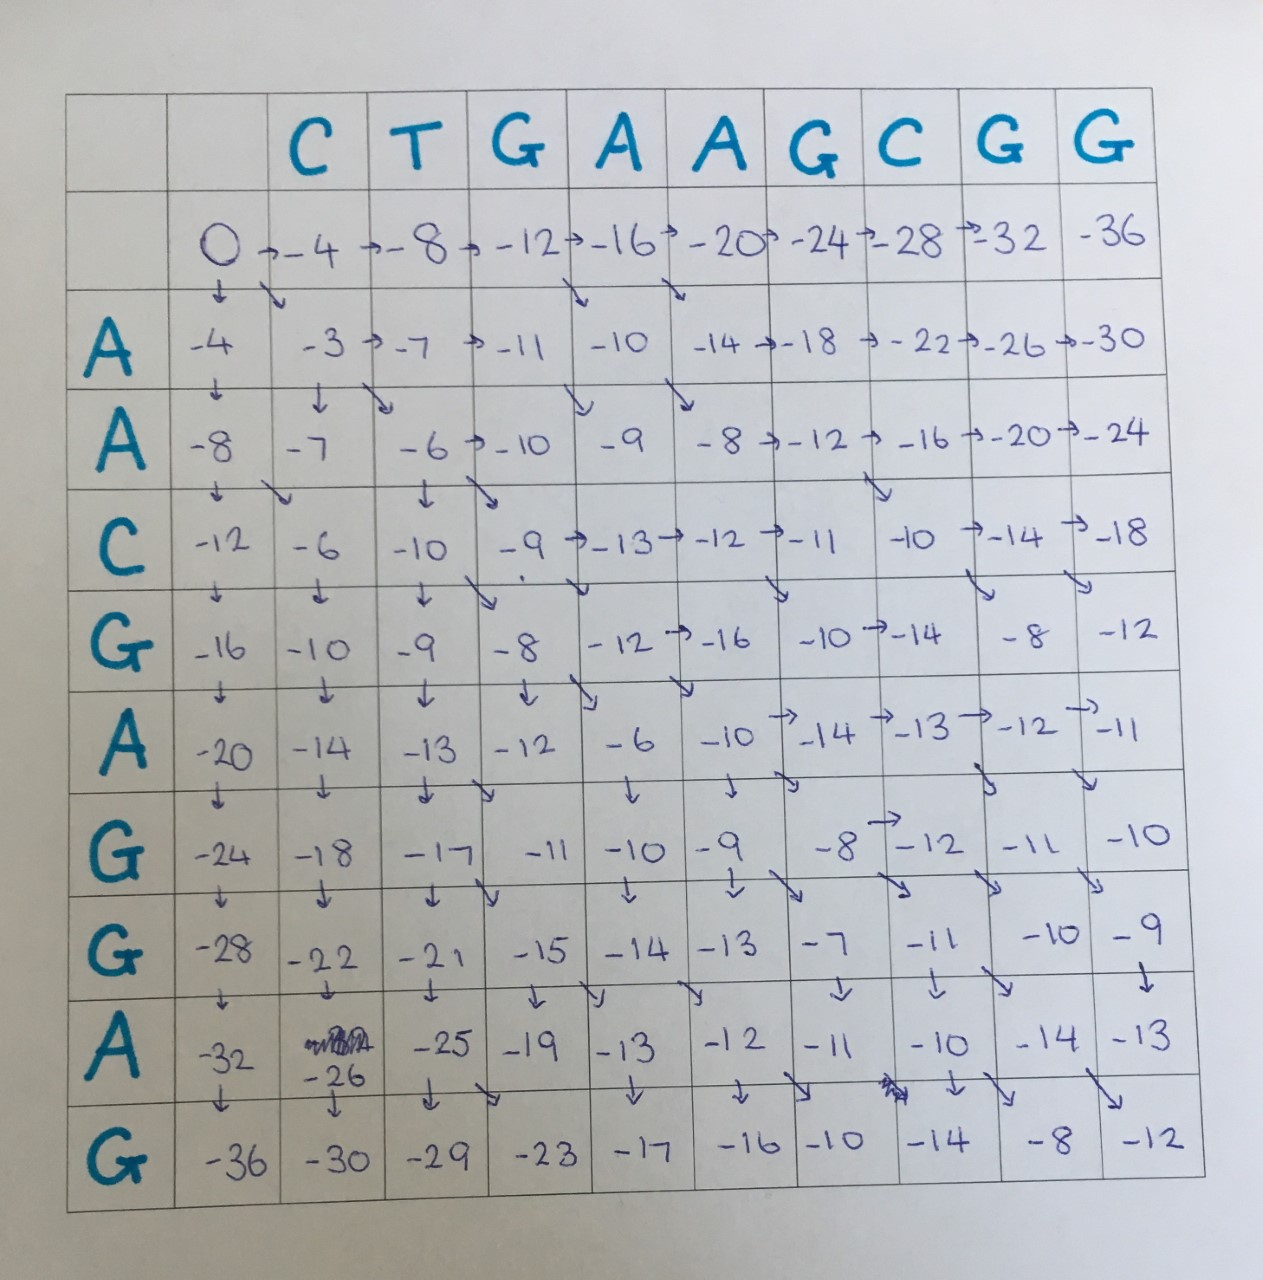 C T G A A G C G G
0 → -4 → -8 → -12 → -16 → -20 → -24 → -28 → -32 -36
↓ ↘ ↘ ↘
A -4 -3 → -7 → -11 -10 -14 → -18 → -22 → -26 → -30
↓ ↓ ↘ ↘ ↘
A -8 -7 -6 → -10 -9 -8 → -12 → -16 → -20 → -24
↓ ↘ ↓ ↘ ↘
C -12 -6 -10 -9 → -13 → -12 → -11 -10 → -14 → -18
↓ ↓ ↓ ↘ ↘ ↘ ↘ ↘
G -16 -10 -9 -8 -12 → -16 -10 → -14 -8 -12
↓ ↓ ↓ ↓ ↘ ↘
A -20 -14 -13 -12 -6 -10 → -14 → -13 → -12 → -11
↓ ↓ ↓ ↘ ↓ ↓ ↘ ↘ ↘
G -24 -18 -17 -11 -10 -9 -8 → -12 -11 -10
↓ ↓ ↓ ↘ ↓ ↓ ↘ ↘ ↘ ↘
G -28 -22 -21 -15 -14 -13 -7 -11 -10 -9
↓ ↓ ↓ ↓ ↘ ↘ ↓ ↓ ↘ ↓
A -32 -26 -25 -19 -13 -12 -11 -10 -14 -13
↓ ↓ ↓ ↘ ↓ ↓ ↘ ↓ ↘ ↘
G -36 -30 -29 -23 -17 -16 -10 -14 -8 -12